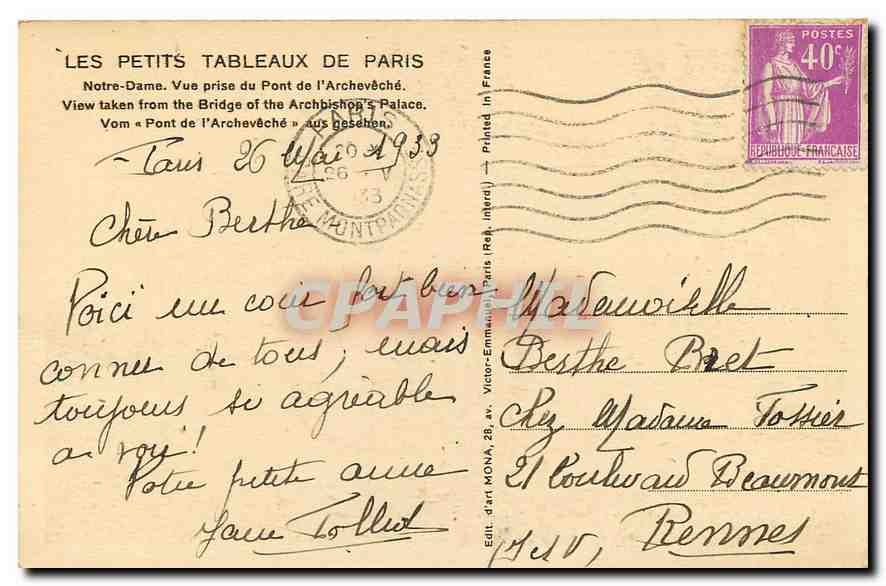 LES PETITS TABLEAUX DE PARIS
Notre-Dame. Vue prise du Pont de l'Archevêché.
View taken from the Bridge of the Archbishop's Palace.
Vom « Pont de l'Archevêché » aus gesehen.
Paris 26 Mai 1933
Chère Berthe
Voici un coin fort bien
connu de tous, mais
toujours si agréable
à voir!
Votre petite amie
PARIS
GARE MONTPARNASSE
POSTES
40c
REPUBLIQUE FRANCAISE
Edit. d'art MONA, 28, av. Victor-Emmanuel, Paris (Rep. interd.) — Printed in France
CPAPHIL
Mademoiselle
Berthe Bret
Chez Madame Tossier
21 boulevard Beaumont
Rennes
(I et V)